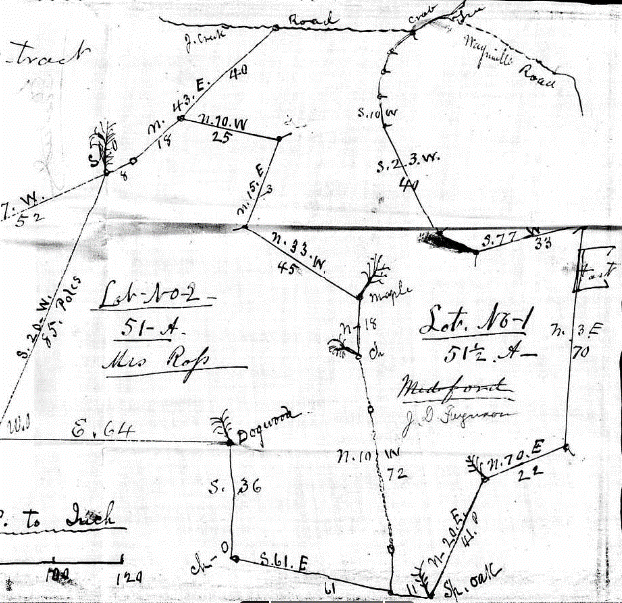 Road
Crab
J. Creek
Waynesville Road
tract
N. 43. E.
40
18
N. 70. W
25
S. 10 W
S. 23. W.
40
8
W.
52
N. 15. E
3
S. 77 W
33
N. 33. W.
45
Maple
S. 20. W.
85. Poles
Lot-No-2-
51-A.
Mrs Ross
N-18
Lot. No-1
51½. A-
N. 3 E
70
Medford
J. D. Ferguson
W.O
E. 64
Dogwood
N. 10 W
72
N. 70. E
22
S. 36
N-20. E.
41. P
P. to Inch
100
120
Ch-O
S. 61. E
61
11
Sp. oak